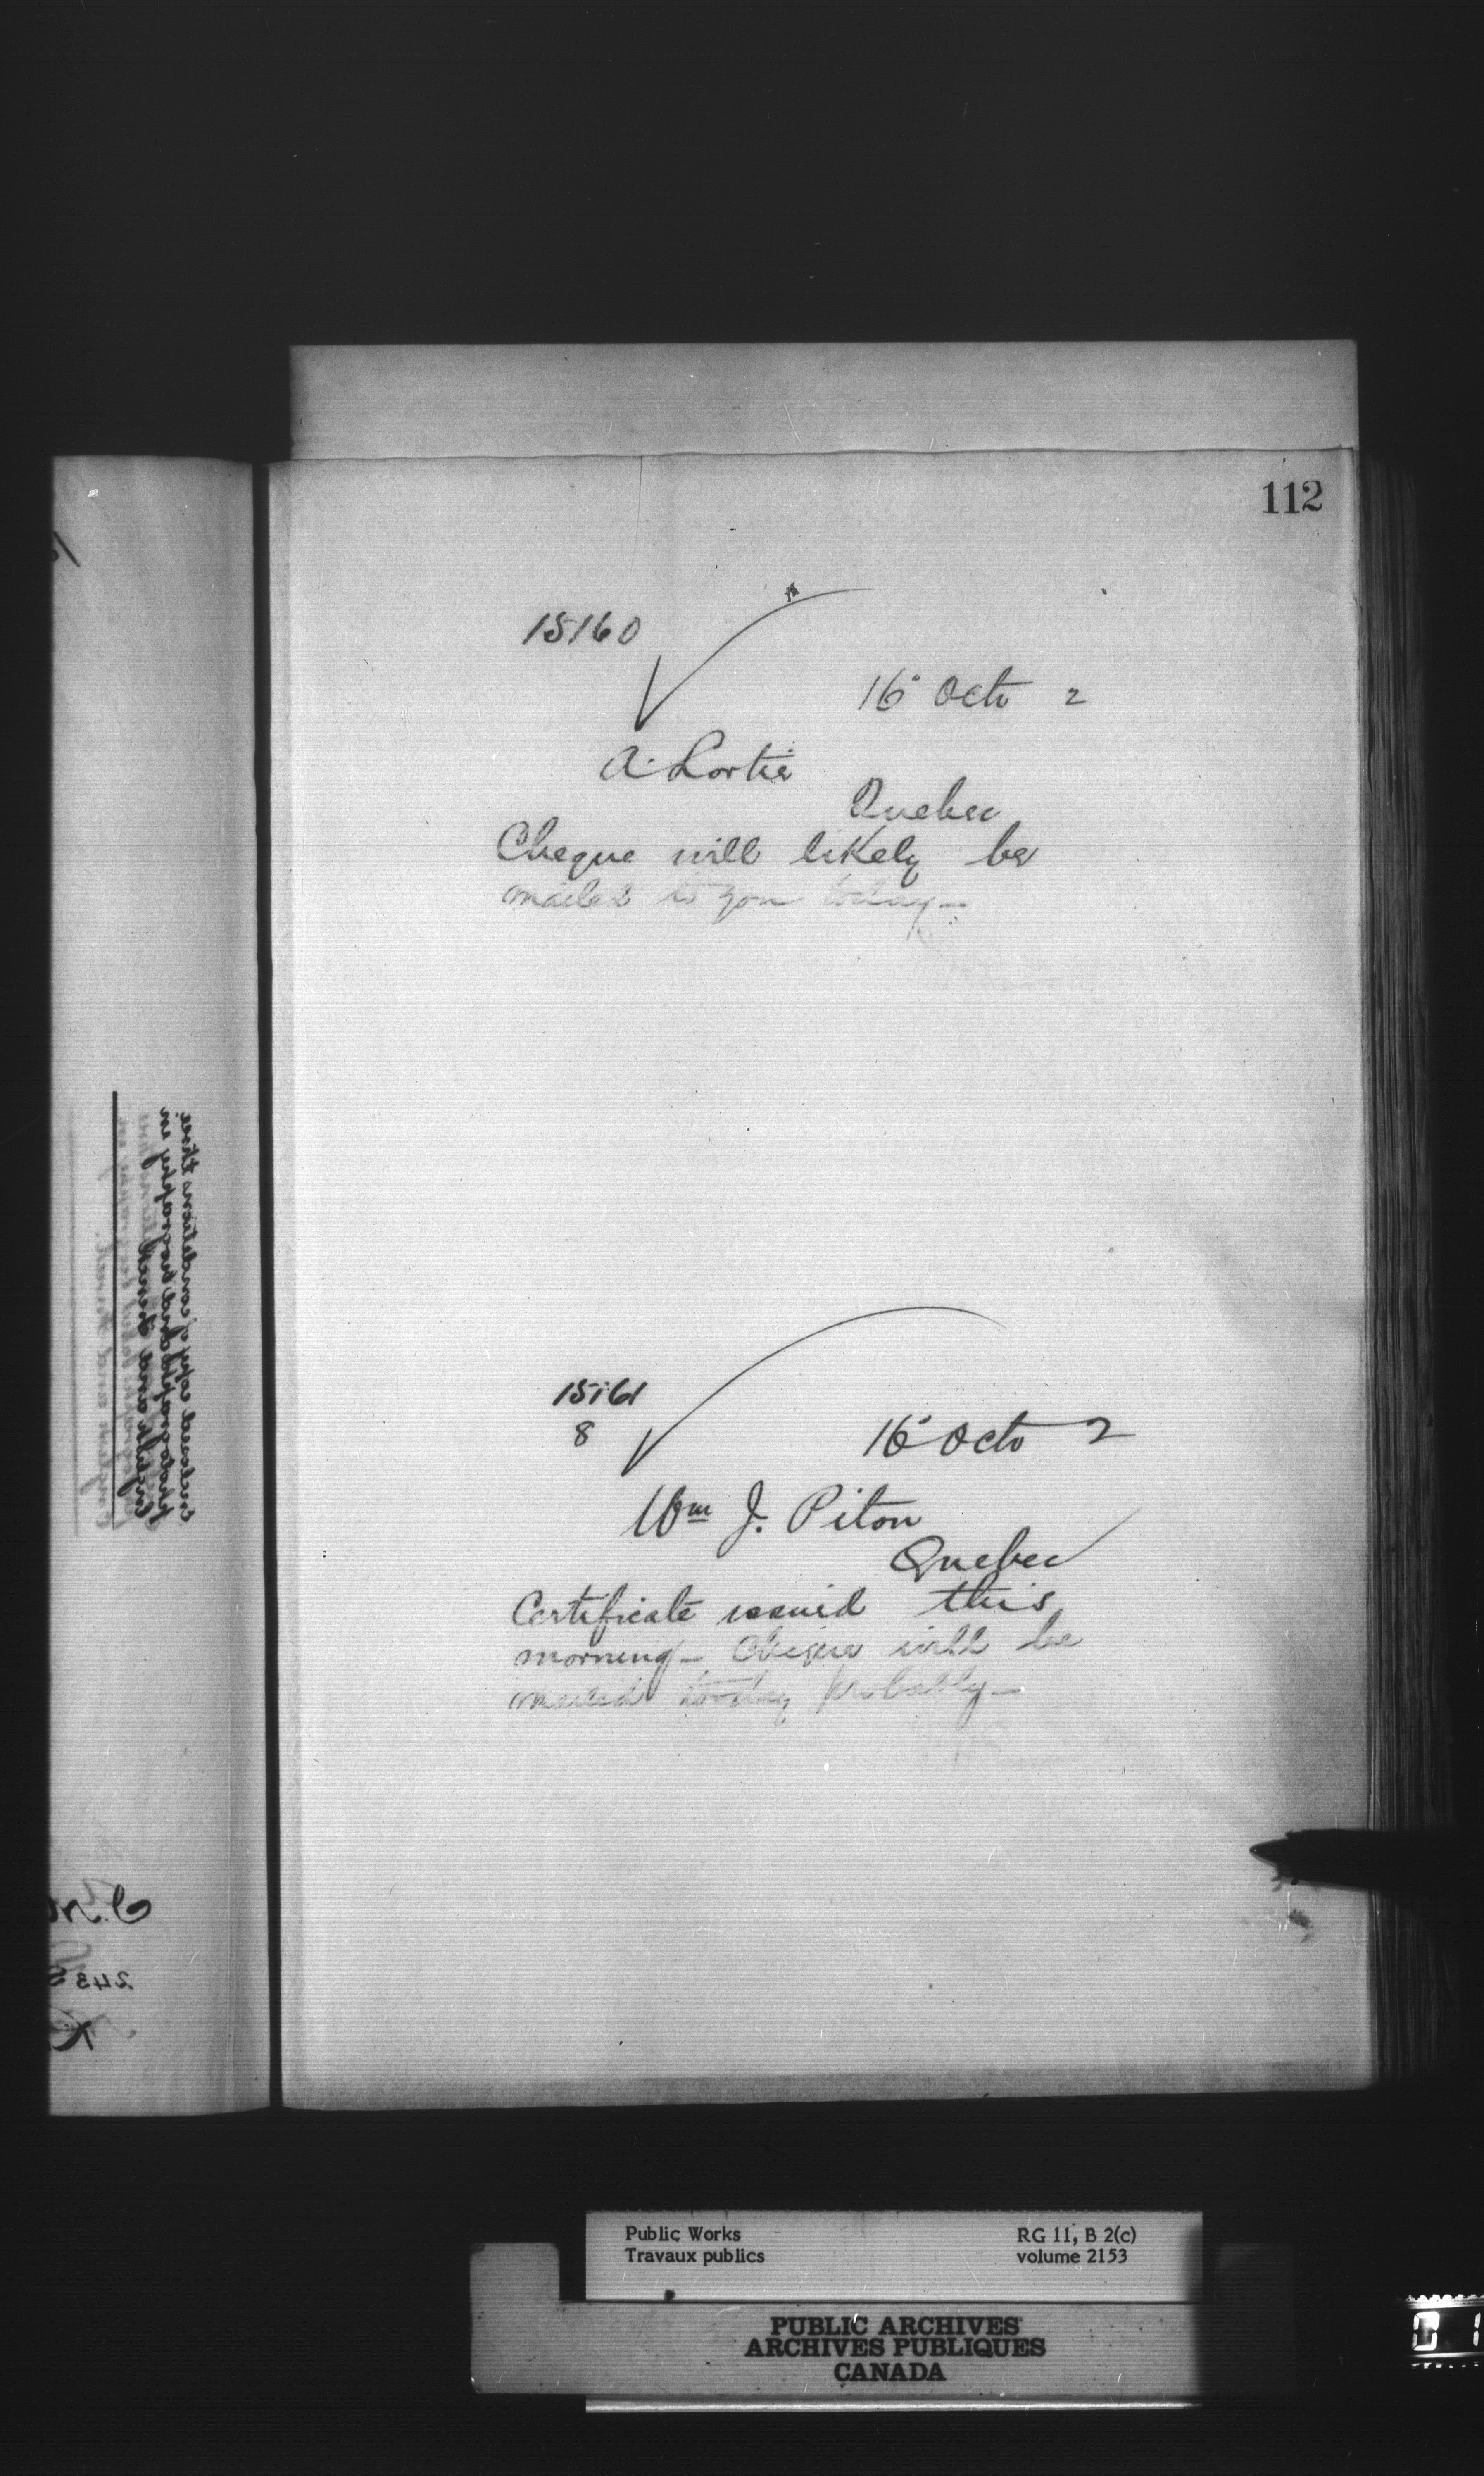 112
15160
16 Octo 2
A. Lortie
Quebec
Cheque will likely be
mailed to you today—
15161
8
16 Octo 2
Wm J. Piton
Quebec
Certificate issued this
morning— Cheque will be
mailed to-day probably—
243
Public Works
Travaux publics
RG 11, B 2(c)
volume 2153
PUBLIC ARCHIVES
ARCHIVES PUBLIQUES
CANADA